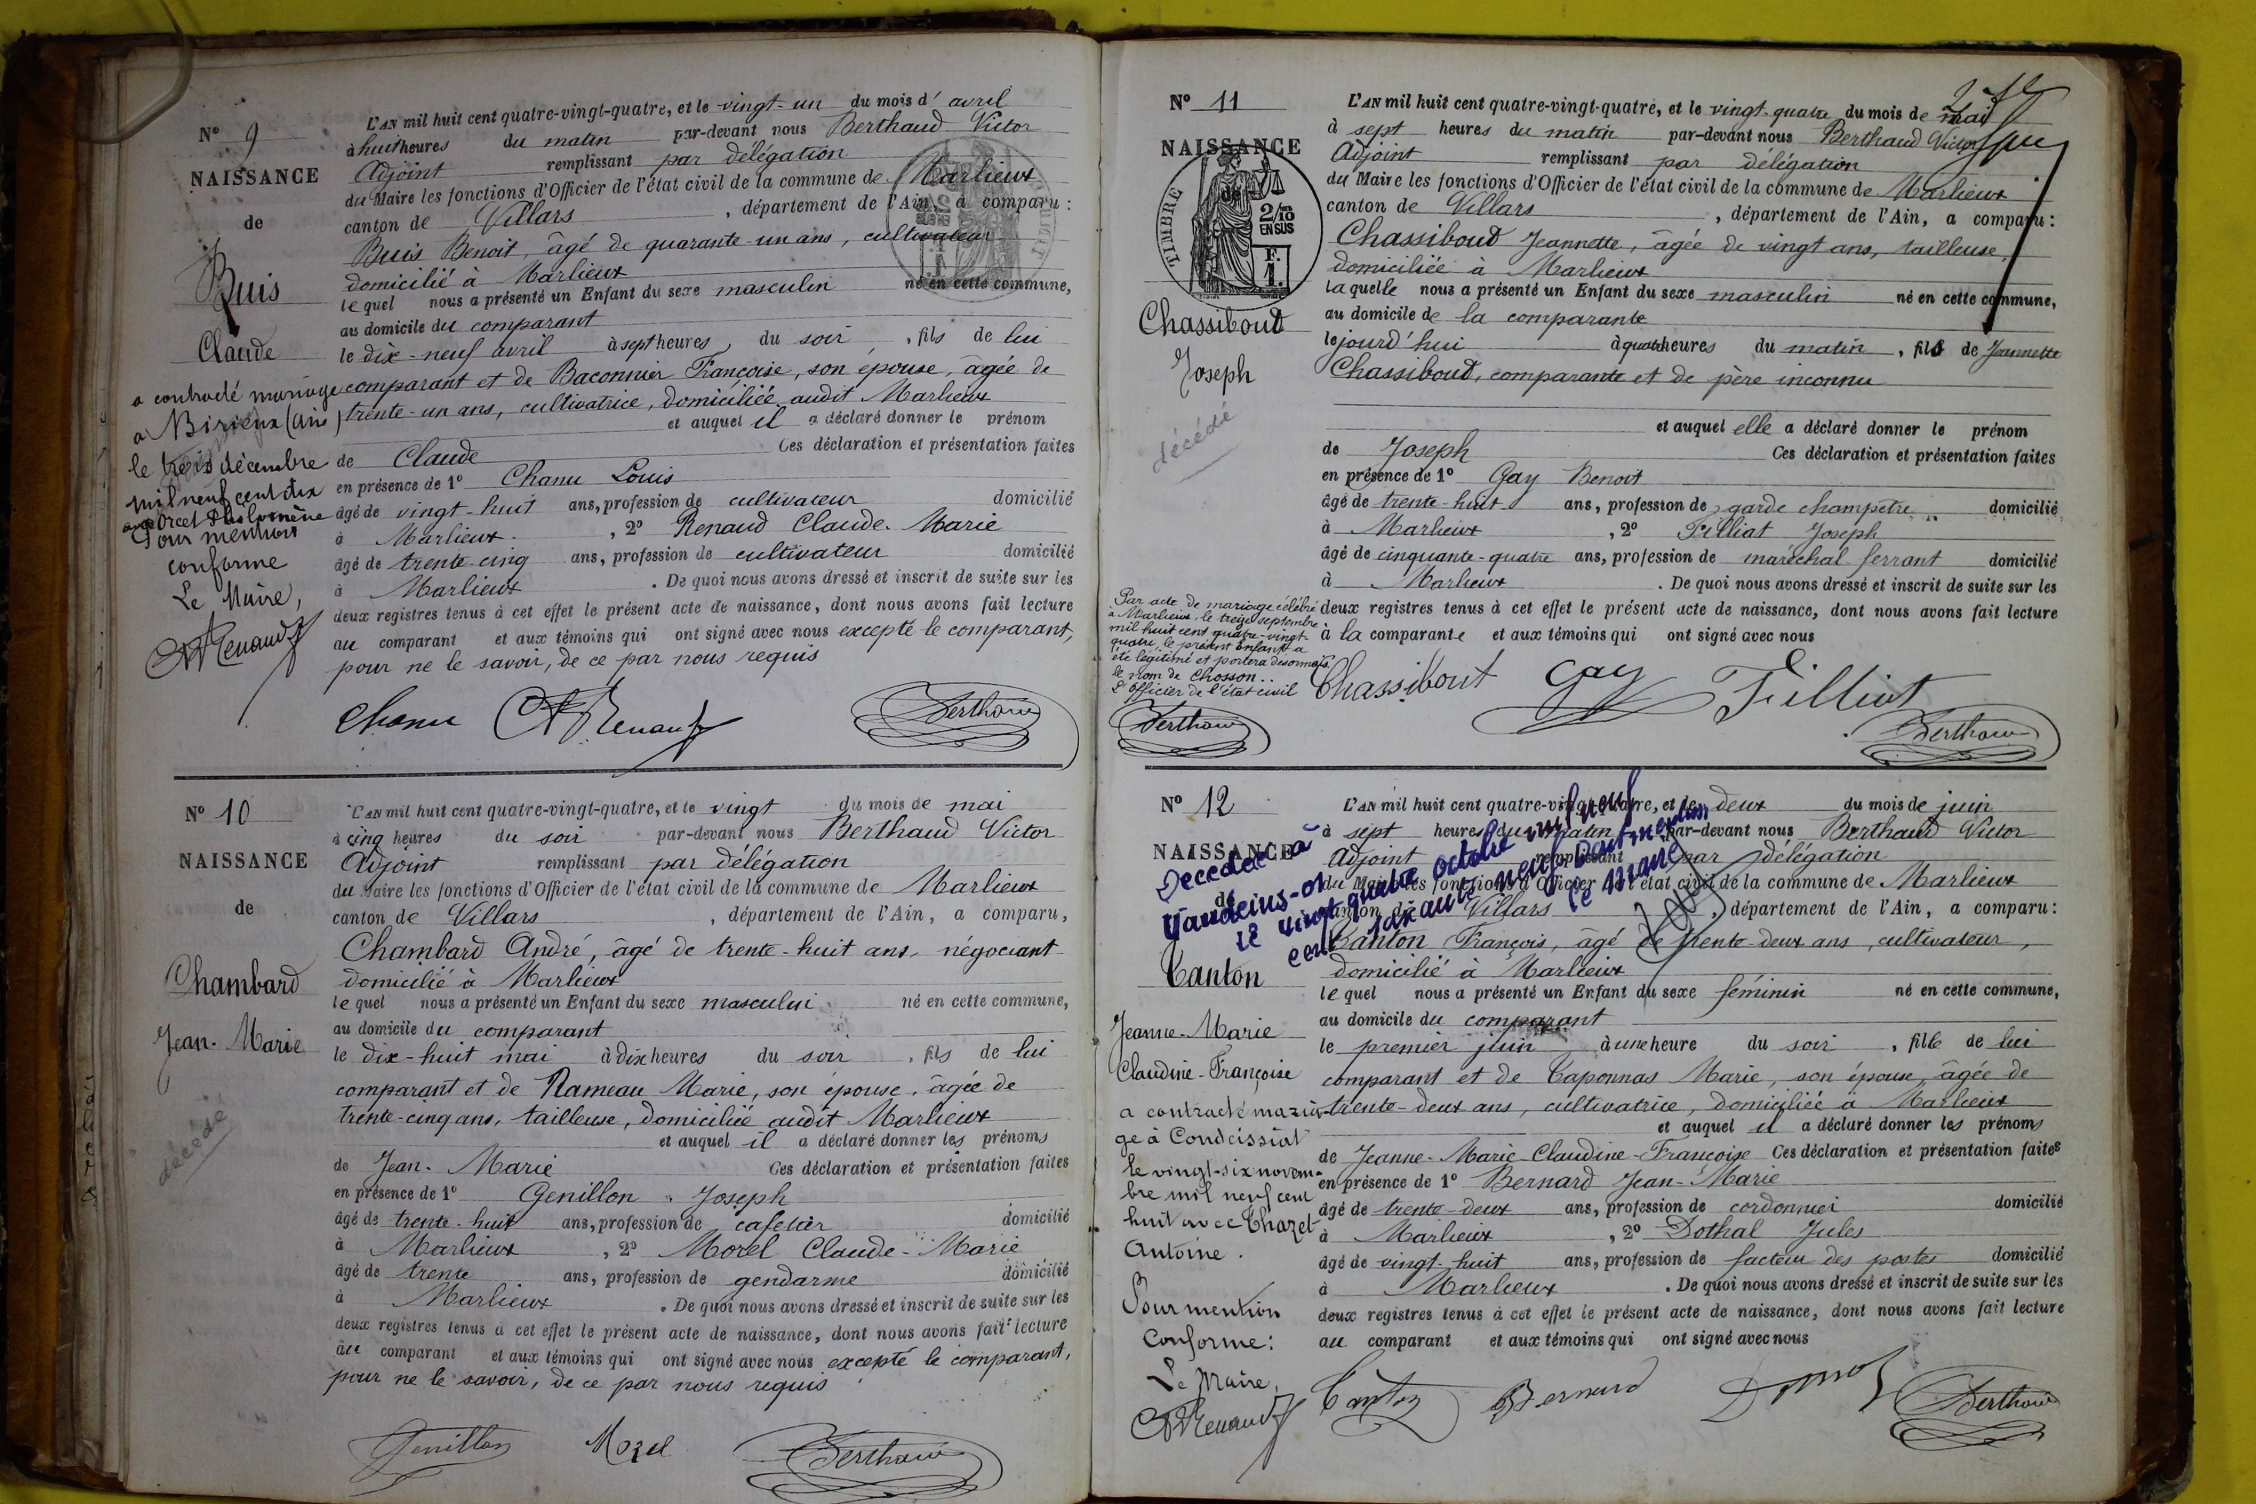 N° 9
NAISSANCE
de
Buis
Claude
a contracté mariage
a Birieux (Ain)
le trois décembre
mil neuf cent dix
avec Orcet Philomène
Pour mention
conforme
Le Maire,
L'AN mil huit cent quatre-vingt-quatre, et le vingt-un du mois d'avril
à huit heures du matin par-devant nous Berthaud Victor
Adjoint remplissant par délégation
du Maire les fonctions d'Officier de l'état civil de la commune de Marlieux
canton de Villars, département de l'Ain, a comparu :
Buis Benoit, âgé de quarante-un ans, cultivateur
domicilié à Marlieux
lequel nous a présenté un Enfant du sexe masculin né en cette commune,
au domicile du comparant
le dix-neuf avril à sept heures du soir, fils de lui
comparant et de Baconnier Françoise, son épouse, âgée de
trente-un ans, cultivatrice, domiciliée audit Marlieux
et auquel il a déclaré donner le prénom
de Claude Ces déclaration et présentation faites
en présence de 1° Chanu Louis
âgé de vingt-huit ans, profession de cultivateur domicilié
à Marlieux, 2° Renaud Claude-Marie
âgé de trente-cinq ans, profession de cultivateur domicilié
à Marlieux. De quoi nous avons dressé et inscrit de suite sur les
deux registres tenus à cet effet le présent acte de naissance, dont nous avons fait lecture
au comparant et aux témoins qui ont signé avec nous excepté le comparant,
pour ne le savoir, de ce par nous requis
Chanu Renaud Berthaud
N° 10
NAISSANCE
de
Chambard
Jean-Marie
décédé
L'AN mil huit cent quatre-vingt-quatre, et le vingt du mois de mai
à cinq heures du soir par-devant nous Berthaud Victor
Adjoint remplissant par délégation
du Maire les fonctions d'Officier de l'état civil de la commune de Marlieux
canton de Villars, département de l'Ain, a comparu,
Chambard André, âgé de trente-huit ans, négociant
domicilié à Marlieux
lequel nous a présenté un Enfant du sexe masculin né en cette commune,
au domicile du comparant
le dix-huit mai à dix heures du soir, fils de lui
comparant et de Rameau Marie, son épouse, âgée de
trente-cinq ans, tailleuse, domiciliée audit Marlieux
et auquel il a déclaré donner les prénoms
de Jean-Marie Ces déclaration et présentation faites
en présence de 1° Genillon Joseph
âgé de trente-huit ans, profession de cafetier domicilié
à Marlieux, 2° Morel Claude-Marie
âgé de trente ans, profession de gendarme domicilié
à Marlieux. De quoi nous avons dressé et inscrit de suite sur les
deux registres tenus à cet effet le présent acte de naissance, dont nous avons fait lecture
au comparant et aux témoins qui ont signé avec nous excepté le comparant,
pour ne le savoir, de ce par nous requis
Genillon Morel Berthaud
N° 11
NAISSANCE
de
TIMBRE
2/10
EN SUS
F.
1.
Chassiboud
Joseph
décédé
Par acte de mariage célébré
à Marlieux, le treize septembre
mil huit cent quatre-vingt-
quatre, le présent enfant a
été légitimé et portera désormais
le nom de Chosson..
L'Officier de l'état civil
Berthaud
L'AN mil huit cent quatre-vingt-quatre, et le vingt-quatre du mois de mai
à sept heures du matin par-devant nous Berthaud Victor
Adjoint remplissant par délégation
du Maire les fonctions d'Officier de l'état civil de la commune de Marlieux
canton de Villars, département de l'Ain, a comparu :
Chassiboud Jeannette, âgée de vingt ans, tailleuse,
domiciliée à Marlieux
laquelle nous a présenté un Enfant du sexe masculin né en cette commune,
au domicile de la comparante
le jourd'hui à quatre heures du matin, fils de Jeannette
Chassiboud, comparante et de père inconnu
et auquel elle a déclaré donner le prénom
de Joseph Ces déclaration et présentation faites
en présence de 1° Gay Benoit
âgé de trente-huit ans, profession de garde champêtre domicilié
à Marlieux, 2° Filliat Joseph
âgé de cinquante-quatre ans, profession de maréchal ferrant domicilié
à Marlieux. De quoi nous avons dressé et inscrit de suite sur les
deux registres tenus à cet effet le présent acte de naissance, dont nous avons fait lecture
à la comparante et aux témoins qui ont signé avec nous
Chassibout Gay Filliat
Berthaud
N° 12
NAISSANCE
de
Canton
Jeanne-Marie
Claudine-Françoise
a contracté maria-
ge à Condeissiat
le vingt-six novem-
bre mil neuf cent
huit avec Chazet
Antoine.
Pour mention
Conforme :
Le Maire,
Décédée à
Vandeins-01
le vingt quatre octobre mil neuf
cent soixante neuf pour mention
le Maire
L'AN mil huit cent quatre-vingt-quatre, et le deux du mois de juin
à sept heures du matin par-devant nous Berthaud Victor
Adjoint remplissant par délégation
du Maire les fonctions d'Officier de l'état civil de la commune de Marlieux
canton de Villars, département de l'Ain, a comparu :
Canton François, âgé de trente-deux ans, cultivateur,
domicilié à Marlieux
lequel nous a présenté un Enfant du sexe féminin né en cette commune,
au domicile du comparant
le premier juin à une heure du soir, fille de lui
comparant et de Caponnas Marie, son épouse, âgée de
trente-deux ans, cultivatrice, domiciliée à Marlieux
et auquel il a déclaré donner les prénoms
de Jeanne-Marie-Claudine-Françoise Ces déclaration et présentation faites
en présence de 1° Bernard Jean-Marie
âgé de trente-deux ans, profession de cordonnier domicilié
à Marlieux, 2° Dothal Jules
âgé de vingt-huit ans, profession de facteur des postes domicilié
à Marlieux. De quoi nous avons dressé et inscrit de suite sur les
deux registres tenus à cet effet le présent acte de naissance, dont nous avons fait lecture
au comparant et aux témoins qui ont signé avec nous
Canton Bernard Berthaud